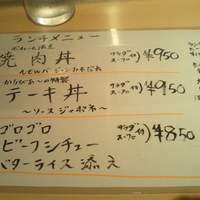 ランチメニュー
焼肉丼
サラダ
スープ付) ¥950
かろびあ〜の特製
テーキ丼
サラダ
スープ付) ¥950
〜ソースジャポネ〜
ゴロゴロ
サラダ
スープ付) ¥850
ビーフシチュー
バターライス添え